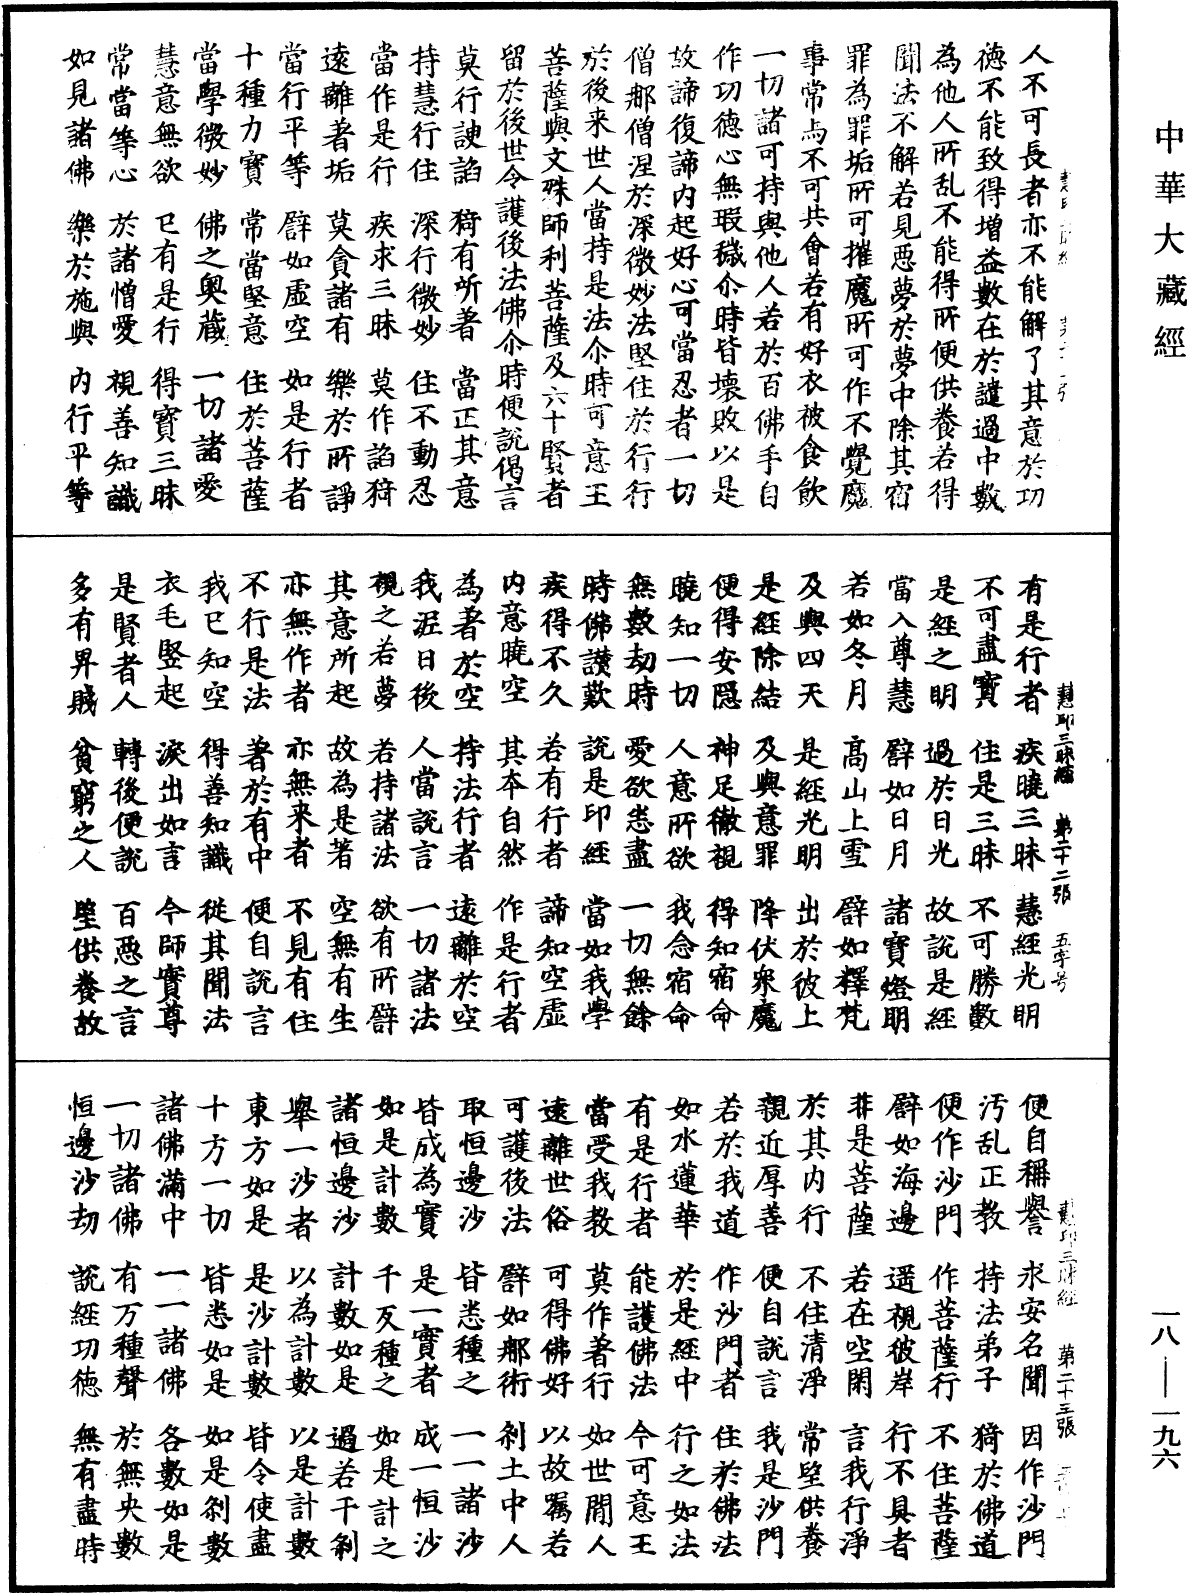 中華大藏經
人不可長者亦不能解了其意於功
德不能致得增益數在於讁過中數
為他人所乱不能得所便供養若得
聞法不解若見惡夢於夢中除其宿
罪為罪垢所可摧魔所可作不覺魔
事常与不可共會若有好衣被食飲
一切諸可持與他人若於百佛手自
作功德心無瑕穢尒時皆壞敗以是
故諦復諦内起好心可當忍者一切
僧那僧涅於深微妙法堅住於行行
於後来世人當持是法尒時可意王
菩薩與文殊師利菩薩及六十賢者
留於後世令護後法佛尒時便說偈言
莫行諛諂 猗有所著 當正其意
持慧行住 深行微妙 住不動忍
當作是行 疾求三昧 莫作諂猗
遠離著垢 莫貪諸有 樂於所諍
當行平等 譬如虛空 如是行者
十種力寶 常當堅意 住於菩薩
當學微妙 佛之奥藏 一切諸愛
慧意無欲 已有是行 得寶三昧
常當等心 於諸憎愛 視善知識
如見諸佛 樂於施與 内行平等
慧印三昧經 第二十二張 五字号
有是行者 疾曉三昧 慧經光明
不可盡寶 住是三昧 不可勝數
是經之明 過於日光 故說是經
當入尊慧 譬如日月 諸寶燈明
若如冬月 高山上雪 譬如釋梵
及與四天 是經光明 出於彼上
是經除結 及與意罪 降伏衆魔
便得安隱 神足徹視 得知宿命
曉知一切 人意所欲 我念宿命
無數劫時 愛欲悉盡 一切無餘
時佛讃歎 說是印經 當如我學
疾得不久 若有行者 諦知空虛
内意曉空 其本自然 作是行者
為著於空 持法行者 遠離於空
我泥日後 人當說言 一切諸法
視之若夢 若持諸法 欲有所譬
其意所起 故為是著 空無有生
亦無作者 亦無来者 不見有住
不行是法 著於有中 便自說言
我已知空 得善知識 從其聞法
衣毛竪起 淚出如言 今師實尊
是賢者人 轉後便說 百惡之言
多有昇賤 貧窮之人 堅供養故
慧印三昧經 第二十三張
便自稱譽 求安名聞 因作沙門
汚乱正教 持法弟子 猗於佛道
便作沙門 作菩薩行 不住菩薩
譬如海邊 遥視彼岸 行不具者
非是菩薩 若在空閑 言我行淨
於其内行 不住清淨 常堅供養
親近厚善 便自說言 我是沙門
若於我道 作沙門者 住於佛法
如水蓮華 於是經中 行之如法
有是行者 能護佛法 今可意王
當受我教 莫作著行 如世間人
遠離世俗 可得佛好 以故囑若
可護後法 譬如那術 刹土中人
取恒邊沙 皆悉種之 一一諸沙
皆成為寶 是一寶者 成一恒沙
如是計數 千反種之 如是計之
諸恒邊沙 計數如是 過若干刹
舉一沙者 以為計數 以是計數
東方如是 是沙計數 皆令使盡
十方一切 皆悉如是 如是刹數
諸佛滿中 一一諸佛 各數如是
一切諸佛 有万種聲 於無央數
恒邊沙劫 說經功德 無有盡時
一八—一九六